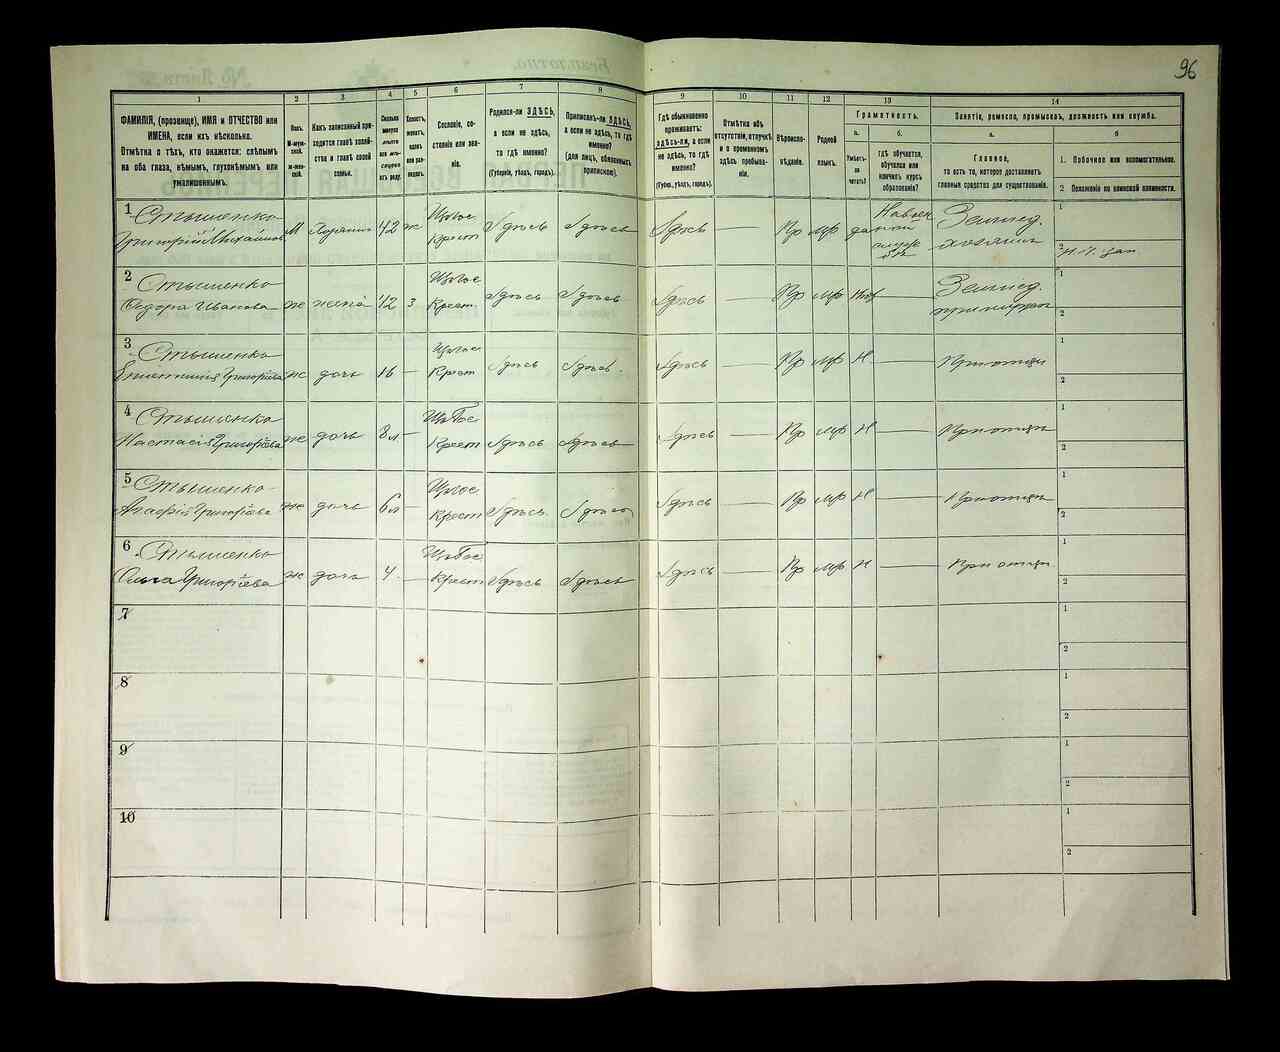 96
1
2
3
4
5
6
7
8
9
10
11
12
13
14
ФАМИЛІЯ, (прозвище), ИМЯ и ОТЧЕСТВО или
ИМЕНА, если ихъ нѣсколько.
Отмѣтка о тѣхъ, кто окажется: слѣпымъ
на оба глаза, нѣмымъ, глухонѣмымъ или
умалишеннымъ.
Полъ.
М-мужской.
Ж-женской.
Какъ записанный приходится
главѣ хозяйства
и главѣ своей
семьи.
Сколько
минуло
лѣтъ
Холостъ,
женатъ,
вдовъ
или разведенъ.
Сословіе, состояніе
или званіе.
Родился-ли ЗДѢСЬ,
а если не здѣсь,
то гдѣ именно?
(Губернія, уѣздъ, городъ).
Приписанъ-ли ЗДѢСЬ,
а если не здѣсь, то гдѣ
именно?
(для лицъ, обязанныхъ
припиской).
Гдѣ обыкновенно
проживаетъ:
здѣсь-ли, а если
не здѣсь, то гдѣ
именно?
(Губер., уѣздъ, городъ).
Отмѣтка объ
отсутствіи, отлучкѣ
и о временномъ
здѣсь пребываніи.
Вѣроисповѣданіе.
Родной
языкъ.
Грамотность.
а.
б.
Умѣетъ-ли
читать?
гдѣ обучается,
обучался или
кончилъ курсъ
образованія?
Занятіе, ремесло, промыселъ, должность или служба.
а.
б
Главное,
то есть то, которое доставляетъ
главныя средства для существованія.
1. Побочное или вспомогательное.
2 Положеніе по воинской повинности.
1 Стышенко Щ Земпед.
Григорій М 42 ж Крест Здѣсь Здѣсь Здѣсь — Пр мр хозяинъ
2 Стышенко Земпед.
Ѳедора Иванова ж жена 42 3 Крест Здѣсь Здѣсь Здѣсь — Пр мр
3 Стышенко
Григоріева ж дочь 16 — Крест Здѣсь Здѣсь Здѣсь — Пр мр Н — При отцѣ
4 Стышенко
Настасія Григоріева ж дочь 8 л — Крест Здѣсь Здѣсь Здѣсь — Пр мр Н — При отцѣ
5 Стышенко
Агафія Григоріева ж дочь 6 л — Крест Здѣсь Здѣсь Здѣсь — Пр мр Н — При отцѣ
6 Стышенко
Ольга Григоріева ж дочь 4 — Крест Здѣсь Здѣсь Здѣсь — Пр мр Н — При отцѣ
7
8
9
10